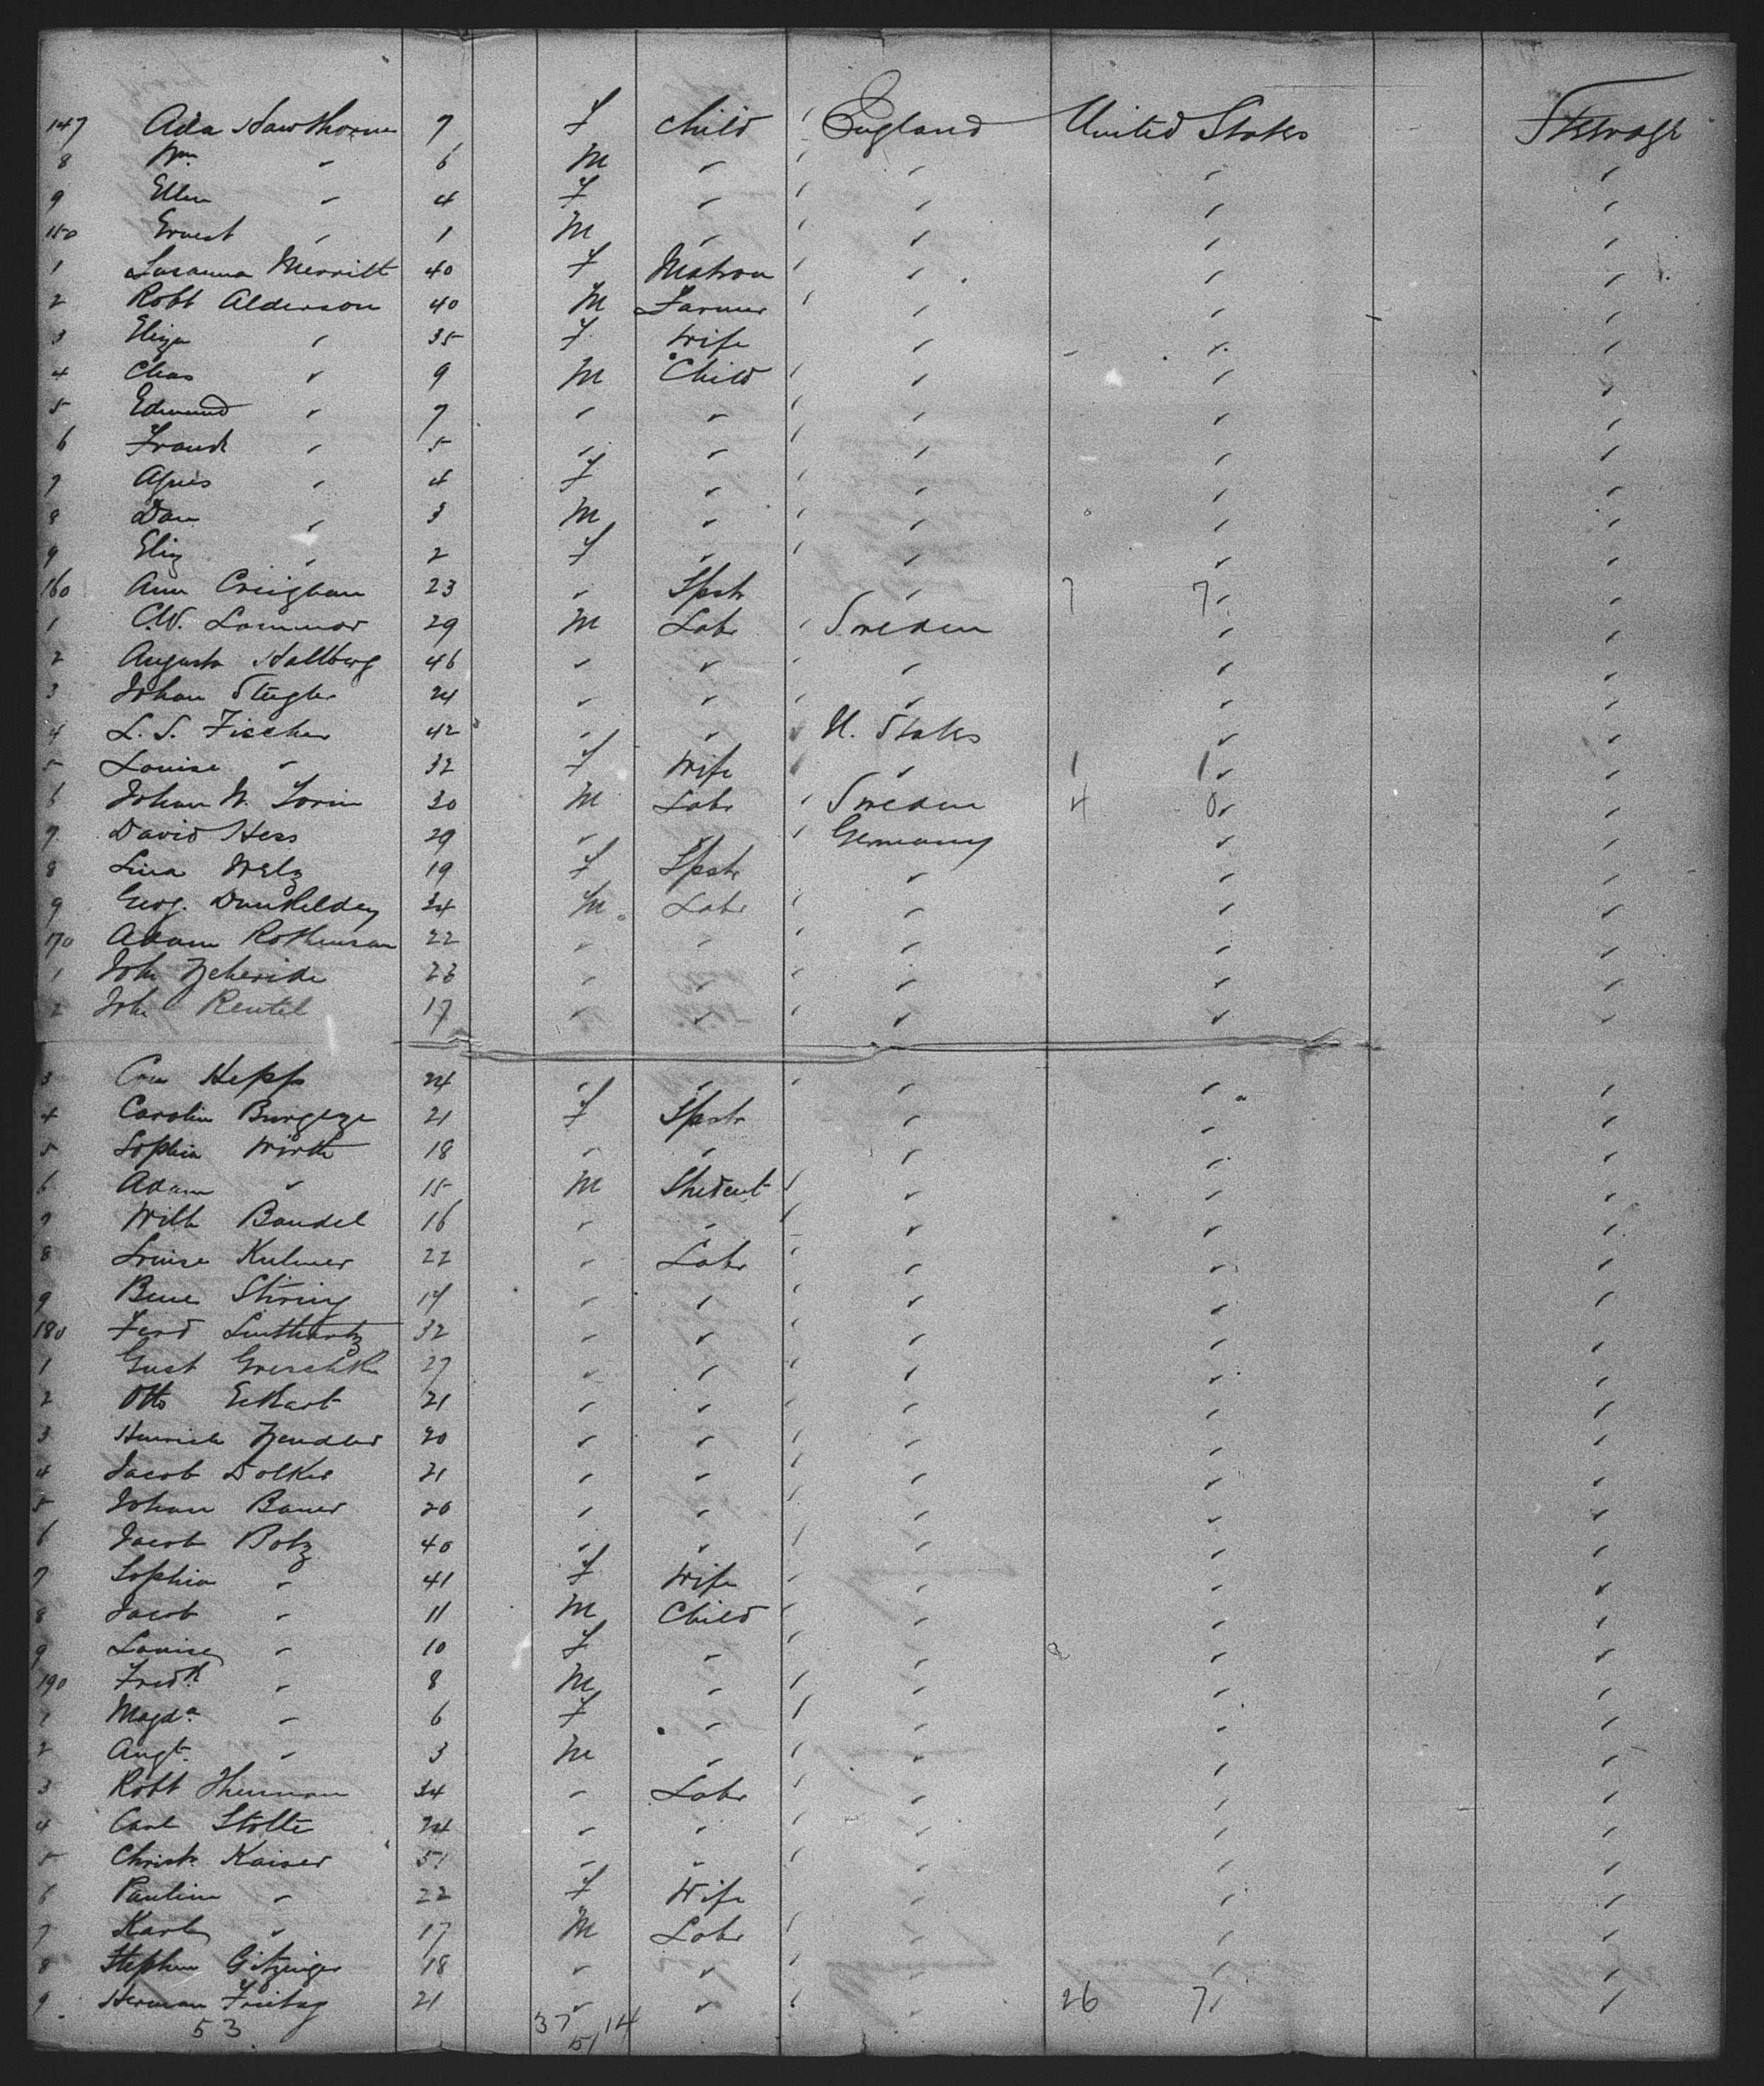 147 Ada Hawthorne 7 F Child England United States Steerage
8 Wm " 6 M " " " "
9 Ellen " 4 F " " " "
150 Ernest " 1 M " " " "
1 Susanna Merritt 40 F Matron " " "
2 Robt Alderson 40 M Farmer " " "
3 Eliza " 35 F Wife " " "
4 Chas " 9 M Child " " "
5 Edmund " 7 " " " " "
6 Frank " 5 " " " " "
7 Agnes " 4 F " " " "
8 Dan " 3 M " " " "
9 Eliz " 2 F " " " "
160 Ann 23 " Spstr " 7 7 " "
1 C.W. 29 M Labr Sweden " "
2 August Hallberg 46 " " " " "
3 Johan 24 " " " " "
4 L. S. Fischer 42 " " U. States " "
5 Louise " 32 F Wife " 1 1 " "
6 Johan W. 30 M Labr Sweden 4 0 " "
7 David Hess 29 " " Germany " "
8 Lina Welz 19 F Spstr " " "
9 Georg. 24 M Labr " " "
170 Adam 22 " " " " "
1 Joh 23 " " " " "
2 Joh Rentel 17 " " " " "
3 Hepp 24 " " " " "
4 Carolin 21 F Spstr " " "
5 Sophia Wirth 18 " " " " "
6 Adam " 15 M Student " " "
7 Wilh Bandel 16 " " " " "
8 Louise Kulmer 22 " Labr " " "
9 " " " " "
180 Ferd 32 " " " " "
1 Gust 27 " " " " "
2 Otto Eckart 21 " " " " "
3 Heinrich Zendler 20 " " " " "
4 Jacob Dolker 21 " " " " "
5 Johan Bauer 20 " " " " "
6 Jacob Botz 40 " " " " "
7 Sophia " 41 F Wife " " "
8 Jacob " 11 M Child " " "
9 Louise " 10 F " " " "
190 Fredk " 8 M " " " "
1 Magda " 6 F " " " "
2 Augt. " 3 M " " " "
3 Robt 34 " Labr " " "
4 Carl Stolte 24 " " " " "
5 Christ. Kaiser 51 " " " " "
6 Pauline " 22 F Wife " " "
7 Karl " 17 M Labr " " "
8 Stephen 18 " " " " "
9 Herman Freitag 21 " " " 26 7 " "
53 37 14
51